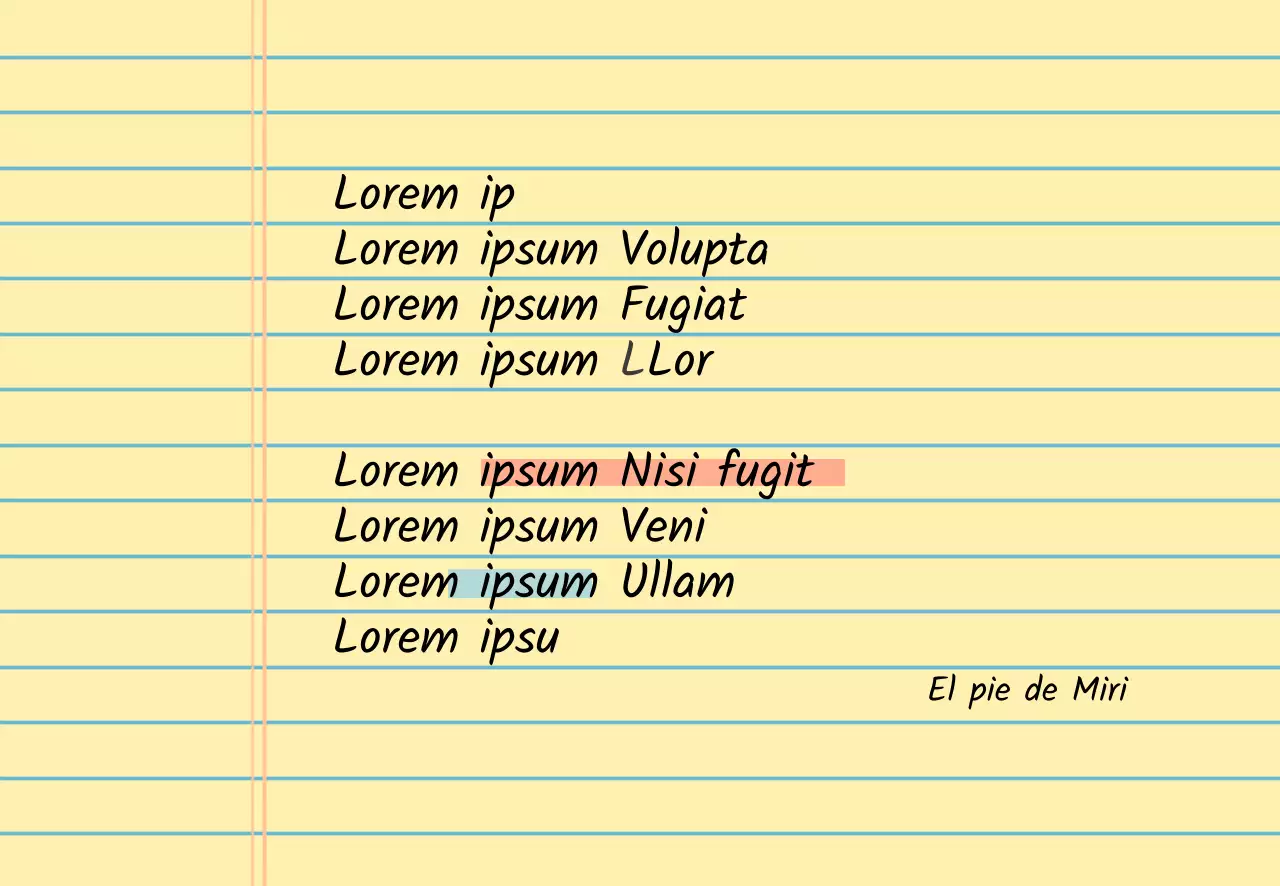 Lorem ip
Lorem ipsum Volupta
Lorem ipsum Fugiat
Lorem ipsum LLor
Lorem ipsum Nisi fugit
Lorem ipsum Veni
Lorem ipsum Ullam
Lorem ipsu
El pie de Miri